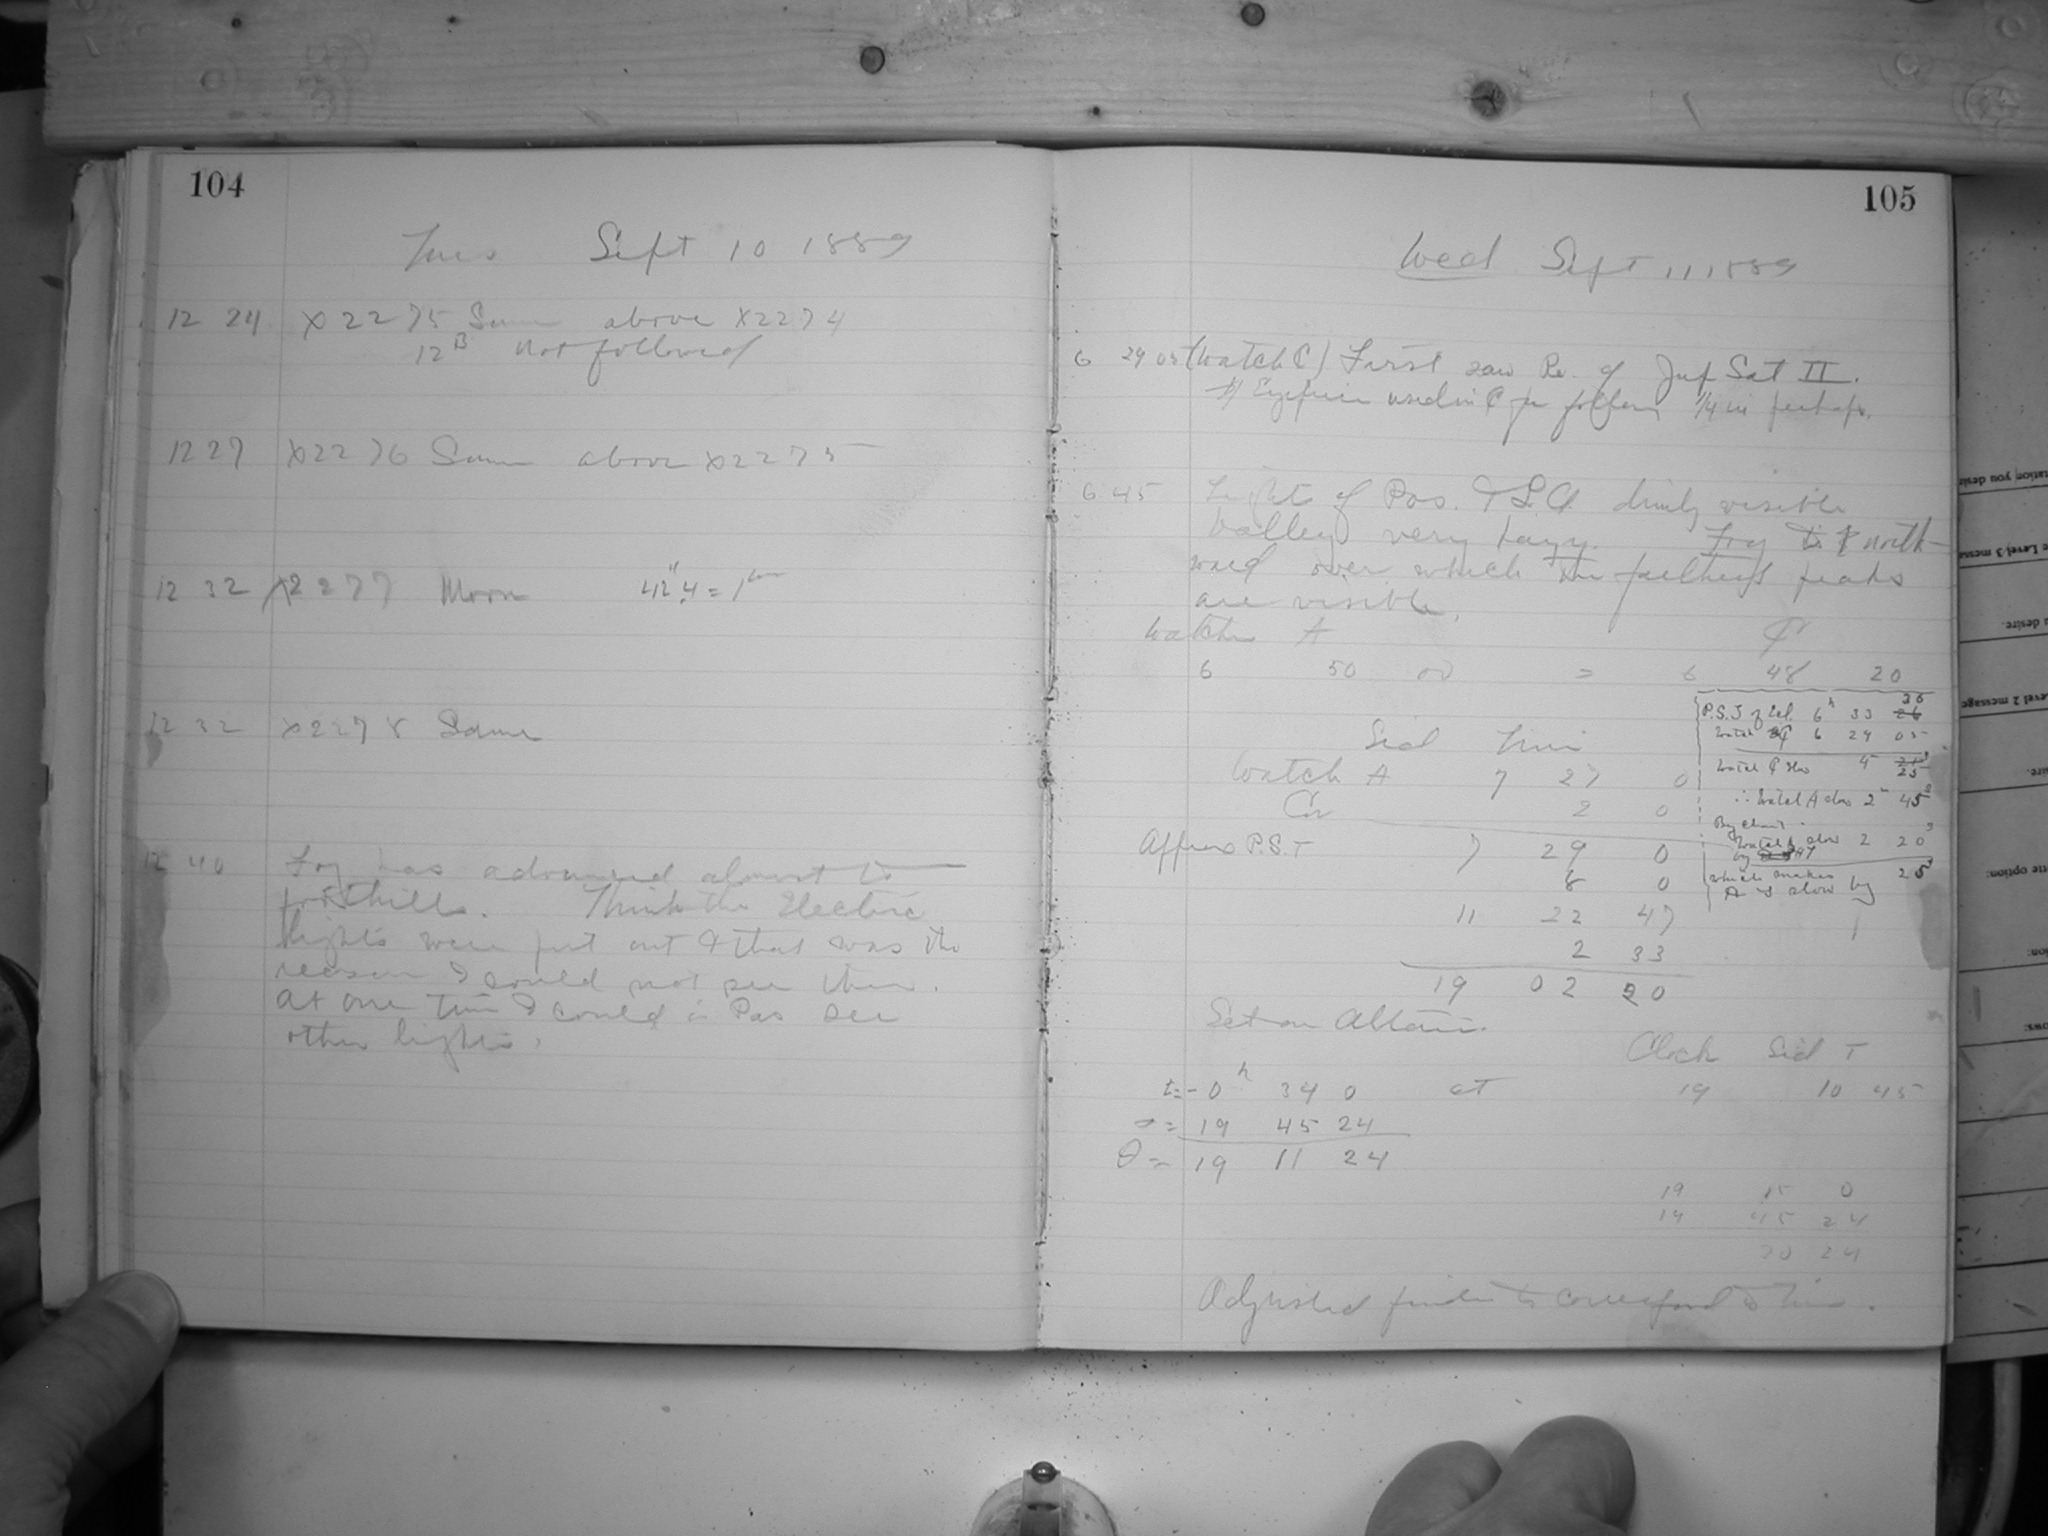 104
Tues Sept 10 1889
12 24 X2275 Same above X2274
12 B not followed
12 27 X2276 Same above X2275
12 32 X2277 Moon 42".4 = 1
12 32 X2278 Same
12 40 Fog has advanced almost to
foothills. Think the Electric
lights were put out & that was the
reason I could not see them.
At one time I could in Pas see
other lights.
105
Wed Sept 11 1889
6 29 05 (Watch C) First saw Re. of Jup Sat II.
Eyepiece used in 1/4 in perhaps.
6 45 Lights of Pas. & L.A. dimly visible
Valley very hazy. Fog to north-
ward over which the peaks
are visible.
Watch A
6 50 00 = 6 48 20
P.S.T of 6h 33 26 30
Watch 6 29 05
Watch slow 4 25
∴ Watch A slow 2m 45s
By
Watch slow 2 20s
by
which makes 25s
A is slow by
Sid Time
Watch A 7 27 0
Cor 2 0
Approx P.S.T 7 29 0
8 0
11 22 47
2 33
19 02 20
Set on Altair.
Clock Sid T
t = -0h 34 0 at 19 10 45
= 19 45 24
θ = 19 11 24
19 15 0
19 45 24
30 24
Adjusted finder to correspond to